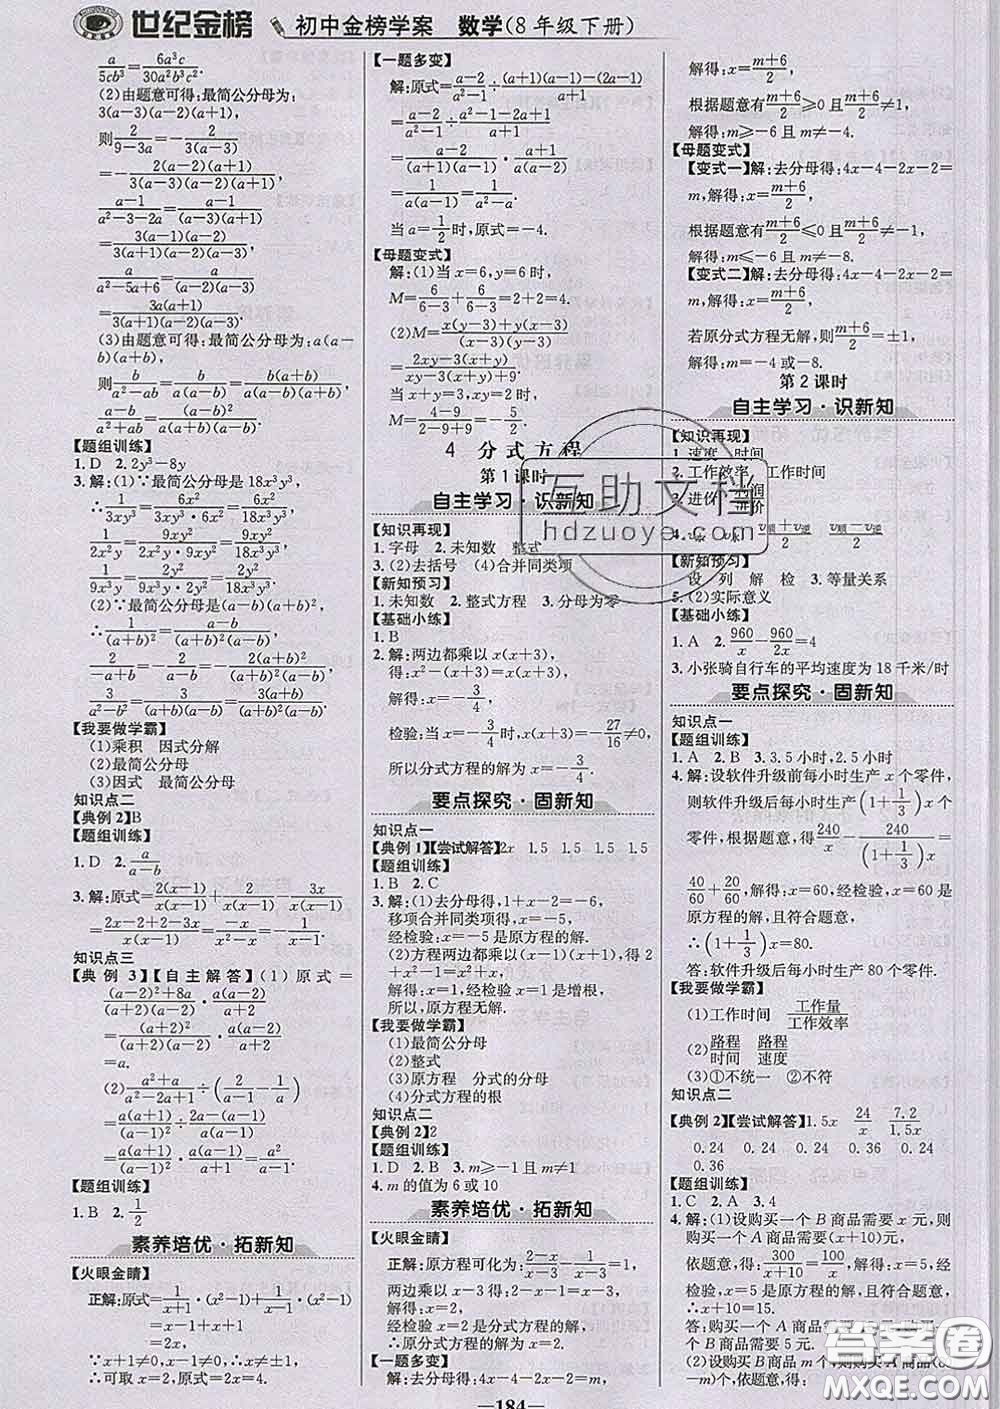 世纪金榜 初中金榜学案 数学(8年级下册)
a/5cb³ = 6a³c/30a²b³c².
(2)由题意可得:最简公分母为:
3(a-3)(a-2)(a+1),
则 2/(9-3a) = -2/3(a-3) =
-2(a-2)(a+1)/3(a-3)(a-2)(a+1),
(a-1)/(a²-3-2a) = (a-1)/(a-3)(a+1)
= 3(a-1)(a-2)/3(a+1)(a-2)(a-3),
a/(a²-5a+6) =
3a(a+1)/3(a+1)(a-2)(a-3).
(3)由题意可得:最简公分母为:a(a-b)(a+b),
则 b/(a²-ab) = b/a(a-b) = b(a+b)/a(a-b)(a+b),
【题组训练】
1. D 2. 2y³-8y
3. 解:(1)∵最简公分母是18x³y³,
(2)∵最简公分母是(a-b)(a+b)²,
【我要做学霸】
(1)乘积 因式分解
(2)最简公分母
(3)因式 最简公分母
知识点二
【典例2】B
【题组训练】
1. D 2. a/(a-b)
3. 解:原式=2(x-1)/x(x-1) + 2/x(x-1) - 3x/x(x-1)
=(2x-2+2-3x)/x(x-1) = -x/(x²-x) = -1/(x-1).
知识点三
【典例3】【自主解答】(1)原式=
((a-2)²+8a)/(a+2)(a-2) · a(a-2)/(a+2)
=(a+2)²/(a+2)(a-2) · a(a-2)/(a+2)
=a.
【题组训练】
1. B 2. 1/2
素养培优·拓新知
【火眼金睛】
正解:原式=1/(x+1)·(x²-1)+1/(x-1)·(x²-1)
=x-1+x+1
=2x,
∵x+1≠0,x-1≠0,∴x≠±1,
∴可取x=2,原式=2x=4.
【一题多变】
解:原式=(a-2)/(a²-1)÷((a+1)(a-1)-(2a-1))/(a+1)
=(a-2)/(a²-1)÷(a²-1-2a+1)/(a+1)
=(a-2)/(a+1)(a-1)·(a+1)/a(a-2)
=1/a(a-1)=1/(a²-a).
当a=1/2时,原式=-4.
【母题变式】
解:(1)当x=6,y=6时,
M=6/(6-3)+6/(6-3)=2+2=4.
(2)M=(x(y-3)+y(x-3))/(x-3)(y-3)
=(2xy-3(x+y))/(xy-3(x+y)+9),
当x+y=3,xy=2时,
M=(4-9)/(2-9+9)=-5/2.
4 分式方程
第1课时
自主学习·识新知
【知识再现】
1. 字母 2. 未知数 整式
3. (2)去括号 (4)合并同类项
【新知预习】
1. 未知数 2. 整式方程 3. 分母为零
【基础小练】
1. B
2. 解:两边都乘以x(x+3),
得:x²-(x-1)(x+3)=0,
解得:x=-3/4,
检验:当x=-3/4时,x(x+3)=-27/16≠0,
所以分式方程的解为x=-3/4.
要点探究·固新知
知识点一
【典例1】【尝试解答】2x 1.5 1.5 1.5 1.5
【题组训练】
1. B 2. C
3. 解:(1)去分母得,1+x-2=-6,
移项合并同类项得,x=-5,
经检验:x=-5是原方程的解.
(2)方程两边都乘以(x-1)(x+1),得2+x²-1=x²-x,
解得:x=-1,经检验x=-1是增根,
所以,原方程无解.
【我要做学霸】
(1)最简公分母
(2)整式
(3)原方程 分式的分母
(4)分式方程的根
知识点二
【典例2】2
【题组训练】
1. D 2. B 3. m≥-1且m≠1
4. m的值为6或10
素养培优·拓新知
【火眼金睛】
正解:原方程可化为:(2-x)/(x-3)-1/(x-3)=1,
两边都乘以x-3得:2-x-1=x-3,
解得:x=2,
经检验x=2是分式方程的解,
∴原分式方程的解为x=2.
【一题多变】
解:去分母得:4x-4-2x-2=m,
解得:x=(m+6)/2,
根据题意有(m+6)/2≥0且(m+6)/2≠1,
解得:m≥-6且m≠-4.
【母题变式】
【变式一】解:去分母得:4x-4-2x-2=m,解得:x=(m+6)/2,
根据题意有(m+6)/2≤0且(m+6)/2≠-1,
解得:m≤-6且m≠-8.
【变式二】解:去分母得:4x-4-2x-2=m,解得:x=(m+6)/2,
若原分式方程无解,则(m+6)/2=±1,
解得:m=-4或-8.
第2课时
自主学习·识新知
【知识再现】
1. 速度 时间
2. 工作效率 工作时间
3. 进价 利润/进价
【新知预习】
设 列 解 检 3. 等量关系
5. (2)实际意义
【基础小练】
1. A 2. 960/x-960/2x=4
3. 小张骑自行车的平均速度为18千米/时
要点探究·固新知
知识点一
【题组训练】
1. A 2. B 3. 3.5小时,2.5小时
4. 解:设软件升级前每小时生产x个零件,
则软件升级后每小时生产(1+1/3)x个
零件,根据题意,得240/x-240/(1+1/3)x=
40/60+20/60,解得:x=60,经检验,x=60是
原方程的解,且符合题意,
∴(1+1/3)x=80.
答:软件升级后每小时生产80个零件.
【我要做学霸】
(1)工作时间 工作量/工作效率
(2)路程/时间 路程/速度
(3)①不统一 ②不符
知识点二
【典例2】【尝试解答】1.5x 24/x 7.2/1.5x
0.24 0.24 0.24 0.24 0.24
0.36
【题组训练】
1. C 2. A 3. 4
4. 解:(1)设购买一个B商品需要x元,则
购买一个A商品需要(x+10)元,
依题意,得:300/(x+10)=100/x,解得:x=5,经
检验,x=5是原方程的解,且符合题意,
∴x+10=15.
答:购买一个A商品需要15元,购买一
个B商品需要5元.
互助文档
hdzuoye.com
答案圈
MXQE.COM
—184—